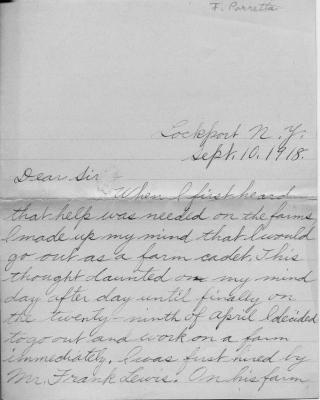 F. Porretta
Lockport N. Y.
Sept. 10. 1918.
Dear Sir
When I first heard
that help was needed on the farms
I made up my mind that I would
go out as a farm cadet. This
thought daunted on my mind
day after day until finally on
the twenty-ninth of April I decided
to go out and work on a farm
immediately. I was first hired by
Mr. Frank Lewis. On his farm